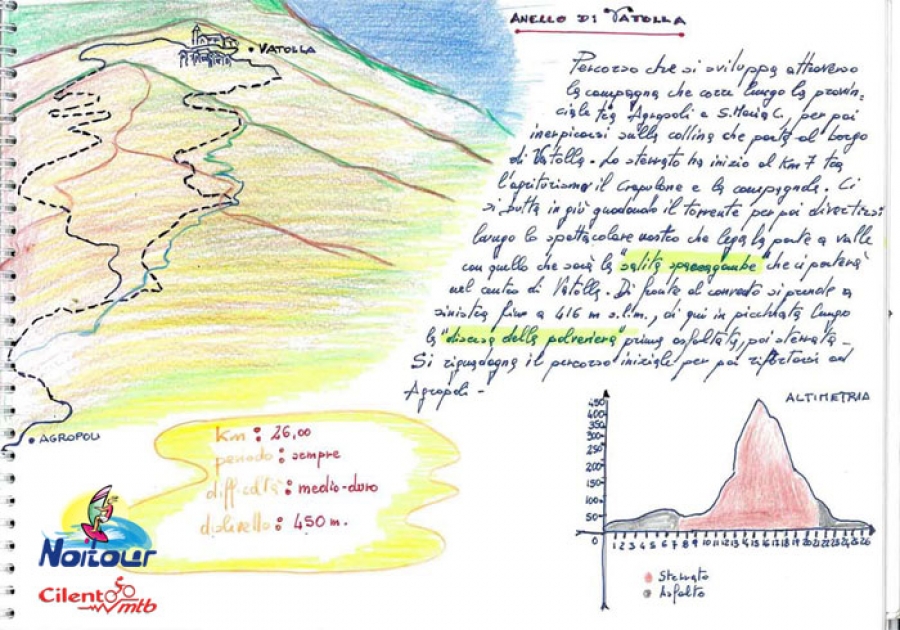 ANELLO DI VATOLLA
Percorso che si sviluppa attraverso
la campagna che corre lungo la provin=
ciale tra Agropoli e S. Maria C., per poi
inerpicarsi sulla collina che porta al borgo
di Vatolla. Lo sterrato ha inizio al Km 7 tra
l'agriturismo il Crapolone e la campagna. Ci
si butta in giù guadando il torrente per poi divertirsi
lungo lo spettacolare nastro che lega la parte a valle
con quello che sarà la "salita spaccagambe" che ci porterà
nel centro di Vatolla. Di fronte al convento si prende a
sinistra fino a 416 m s.l.m., di qui in picchiata lungo
la "discesa della polveriera" prima asfaltata, poi sterrata -
Si riguadagna il percorso iniziale per poi rifiatarsi ad
Agropoli -
VATOLLA
AGROPOLI
km : 26,00
periodo : sempre
difficoltà : medio-duro
dislivello : 450 m.
Noitour
Cilento mtb
ALTIMETRIA
450
400
350
300
250
200
150
100
50
0
1 2 3 4 5 6 7 8 9 10 11 12 13 14 15 16 17 18 19 20 21 22 23 24 25 26
Sterrato
Asfalto